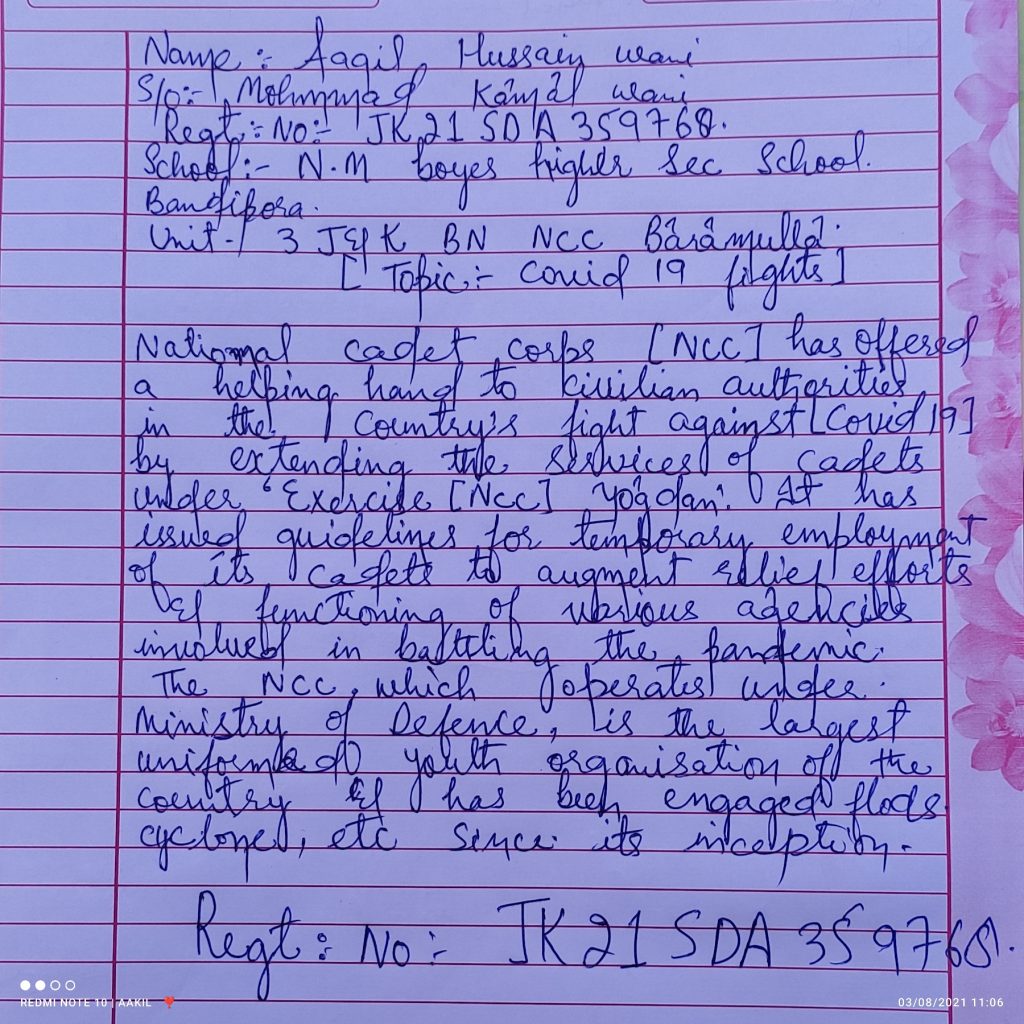 Name :- Aaqil Hussain wani
S/o:- Mohmmad Kamal wani
Regt:- No:- JK 21 SDA 359768.
School:- N.M boyes higher Sec School.
Bandipora.
Unit-/ 3 J&K BN NCC Baramulla.
[ Topic:- Covid 19 fights]
National cadet corps [NCC] has offered
a helping hand to civilian authorities
in the country's fight against [Covid 19]
by extending the services of cadets
under 'Exercise [NCC] Yogdan'. It has
issued guidelines for temporary employment
of its cadets to augment relief efforts
& functioning of various agencies
involved in battling the pandemic.
The NCC, which operates under.
Ministry of Defence, is the largest
uniformed youth organisation of the
country & has been engaged flods
cyclone, etc since its inception.
Regt: No:- JK 21 SDA 359768.
REDMI NOTE 10 | AAKIL ❣
03/08/2021 11:06